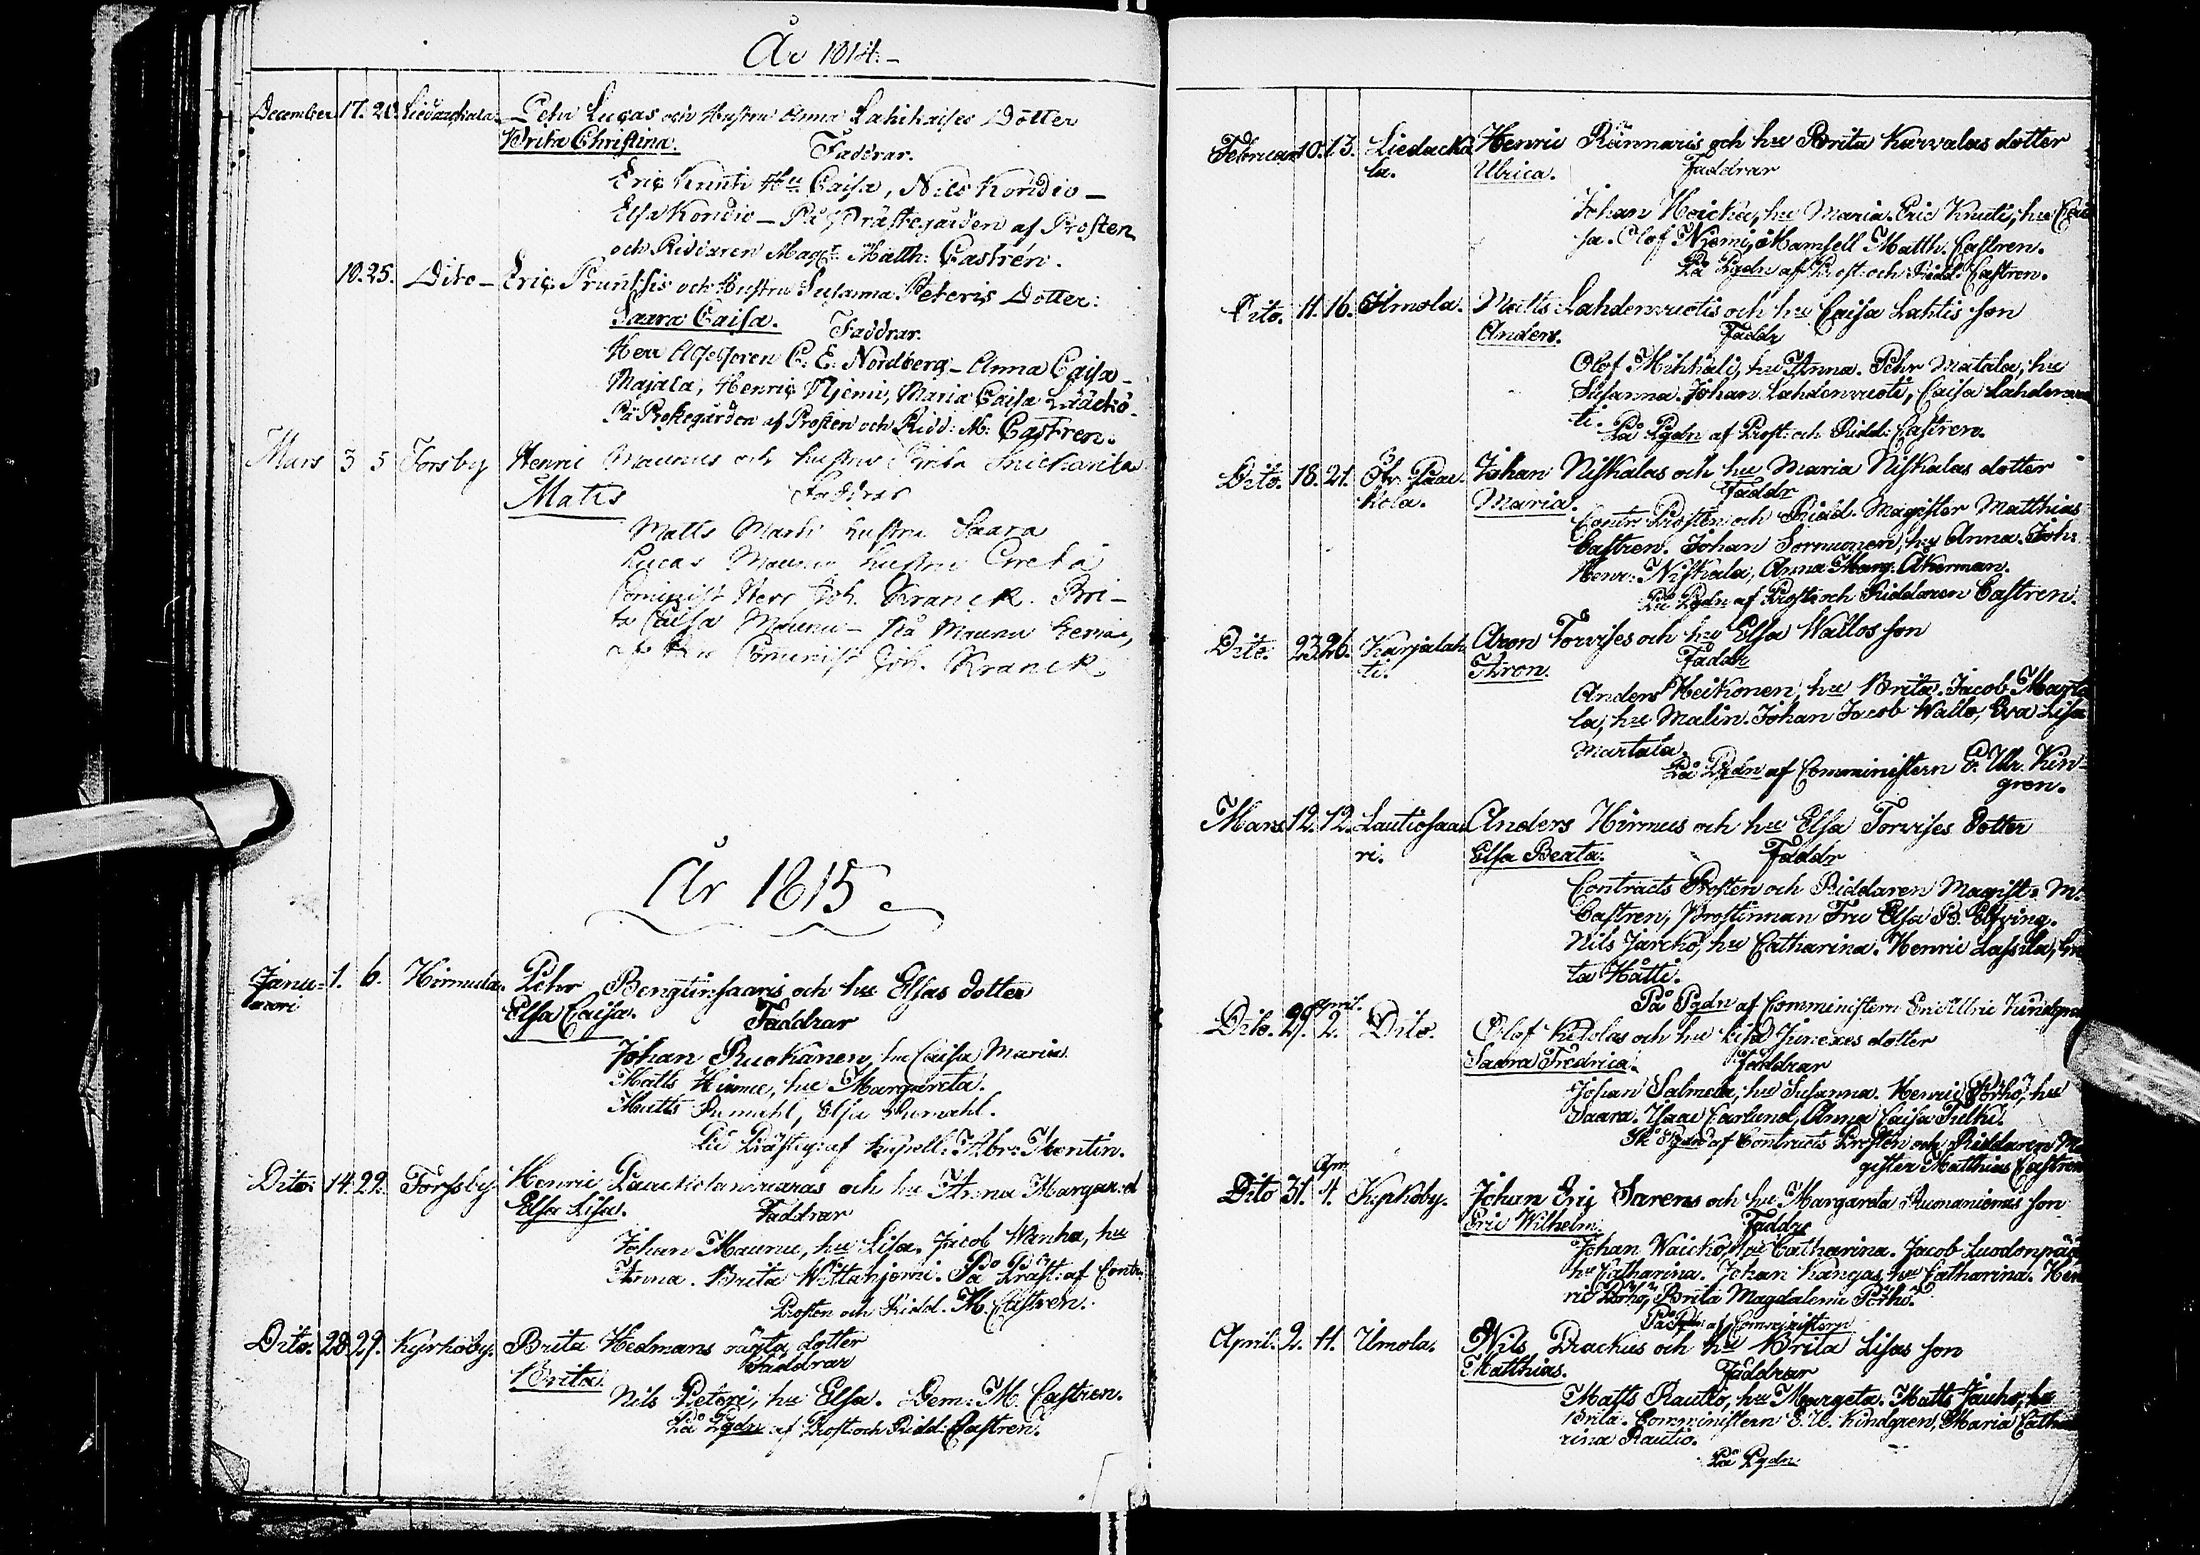 År 1814.-
December 17. 20. Liedackala. Pehr Lucas och Hustru Anna Lahihaises Dotter
Brita Christina.
Faddrar.
Eric Knuuti Hu Caisa, Nils Kordio -
Elsa Kordio - På Prästegården af Prosten
och Riddaren Magr. Matth: Castrén.
10. 25. Dito - Eric Prunksis och Hustru Susanna Peteris Dotter:
Saara Caisa.
Faddrar.
Herr Assessoren C. E. Nordberg - Anna Caisa -
Majala, Henric Njemi, Maria Caisa
På Prostegården af Prosten och Ridd: M: Castren.
Mars 3 5 Torsby Henric Maunus och hustru Brita
Matts
Faddrar
Matts hustru Saara
Lucas Maunu hustru Greta
Cominist Herr Joh. Kranck. Bri-
ta Caisa Maunu - På Maunu
af Cominist Joh. Kranck
År 1815.
Janu-
arri 1. 6. Hirmula. Pehr Bengtinsaaris och hu Elsas dotter
Elsa Caisa.
Faddrar
Johan Ruokanen, hu Caisa Maria.
Matts Hirmu, hu Margareta.
Matts Rumahl, Elsa Rumahl.
På Prästeg: af Capell: Abr: Montin.
Dito. 14. 22. Torssby. Henric Paackolanvaaras och hu Anna Margar: d
Elsa Lisa.
Faddrar
Johan Maunu, hu Lisa. Jacob Wanha, hu
Anna. Brita Wittaniemi. På Präst: af Contr.
Prosten och Ridd. M. Castren.
Dito. 28 29. Kyrkoby. Brita Hedmans oägta dotter
Brita.
Faddrar
Nils Peteri, hu Elsa. Dem: M. Castren.
På Pgdn af Prost. och Ridd: Castren.
Februar 10. 13. Liedacka
la. Henric Rännaris och hu Brita Karvalas dotter
Ulrica.
Faddrar
Johan Hoicka, hu Maria. Eric Knuti, hu Cai
sa. Olof Niemi, Mamsell Matth. Castren.
På Pgdn af Prost: och Ridd: Castren.
Dito. 11. 16. Almola. Matts Lahdenvuotis och hu Caisa Lahtis son
Anders.
Faddr
Olof Mihkali, hu Anna. Pehr Matala, hu
Susanna. Johan Lahdenvuoti, Caisa Lahdenvuo
ti. På Pgdn af Prost: och Ridd: Castren.
Dito. 18. 21. Öfr. Paac-
kola. Johan Niskalas och hu Maria Niskalas dotter
Maria.
Faddr
Contr. Prosten och Ridd. Magister Matthias
Castren. Johan Sormunen, hu Anna. Joh:
Henr. Niskala, Anna Marg. Åkerman.
På Pgdn af Prost: och Riddaren Castren.
Dito. 23. 26. Karjalah
ti. Aron Torvises och hu Elsa Wallos son
Aron.
Faddr
Anders Heikonen, hu Brita. Jacob Marta
la, hu Malin. Johan Jacob Wallo, Eva Lisa
Martala.
På Pgdn af Comministern E. Ulr. Kin-
gren.
Mars 12. 12. Lautiosaa
ri. Anders Hirmus och hu Elsa Torvises dotter
Elsa Beata.
Faddr
Contracts Prosten och Riddaren Magist: M.
Castren, Prostinnan Fru Elsa B. Elfving.
Nils Jarcko, hu Catharina. Henric Lassila, Gre
ta Hätti.
På Pgdn af Comministern Eric Ulric Kindgren
Dito. 29. April. 2. Dito. Olof Kellolas och hu Lisa Junexes dotter
Saara Fredrica.
Faddrar
Johan Salmela, hu Susanna. Henric Pörhö, hu
Saara. Isaac Earlund, Anna Caisa Pulki.
På Pgdn af Contracts Prosten och Riddaren Ma
gister Matthias Castren
Dito 31. Apr. 4. Kyrkoby. Johan Eric Sarens och hu Margareta Rumaniemis son
Eric Wilhelm.
Faddr
Johan Waicko, hu Catharina. Jacob Luodonpää
hu Catharina. Johan Kangas, hu Catharina. Hen
ric Pörhö, Brita Magdalena Pörhö.
På Pgdn af Comministern
April. 2. 11. Almola. Nils Prackus och hu Brita Lisas son
Matthias.
Faddrar
Matts Rautio, hu Margeta. Matts Jauho, hu
Brita. Comministern E. U. Kindgren, Maria Catha
rina Rautio.
På Pgdn